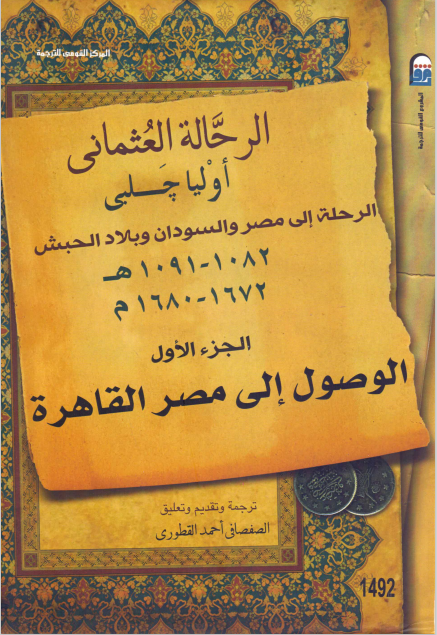 المركز القومى للترجمة
المشروع القومى للترجمة
الرحَّالة العُثمانى
أوْليا چَلبى
الرحلة إلى مصر والسودان وبلاد الحبش
١٠٨٢-١٠٩١ هـ
١٦٧٢-١٦٨٠ م
الجزء الأول
الوصول إلى مصر القاهرة
ترجمة وتقديم وتعليق
الصفصافى أحمد القطورى
1492